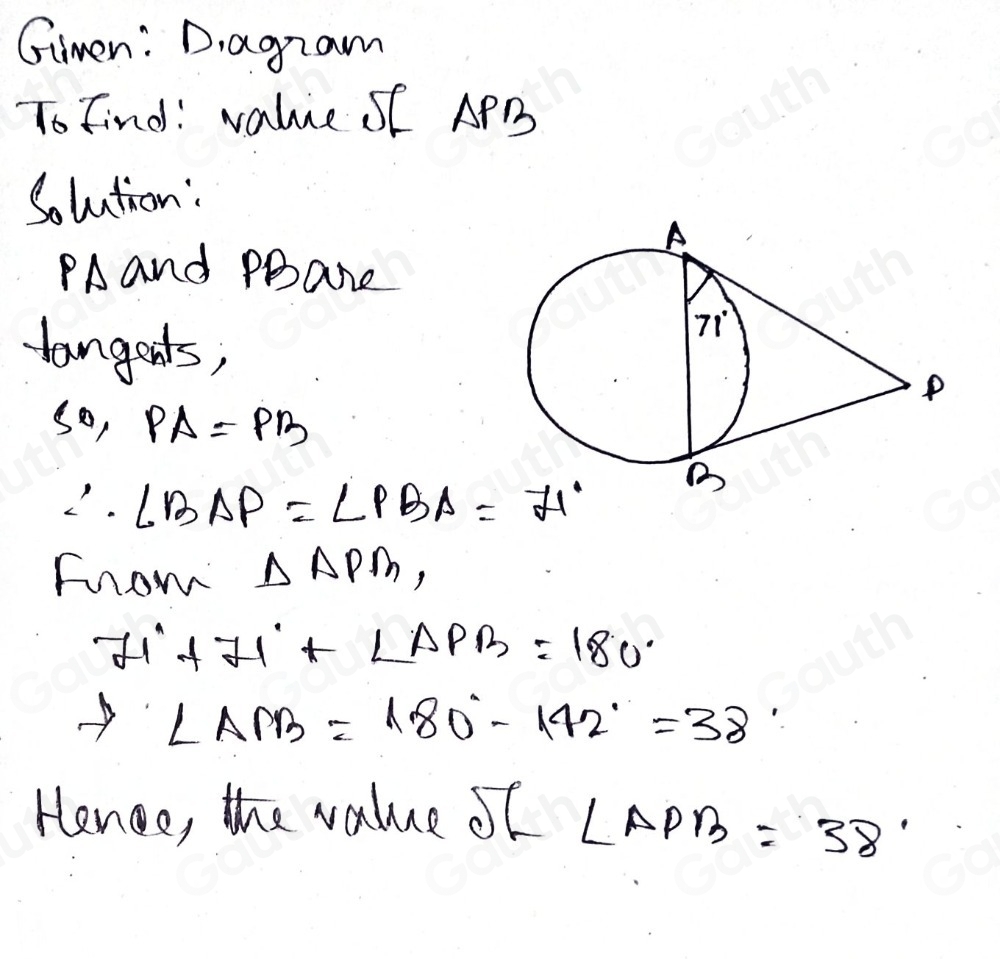 Given: Diagram
To Find: value of APB
Solution:
PA and PB are
tangents,
so, PA = PB
∴ ∠BAP = ∠PBA = 71°
From Δ APB,
71° + 71° + ∠APB = 180°
→ ∠APB = 180° - 142° = 38°
Hence, the value of ∠APB = 38°
A
71°
P
B
Gauth